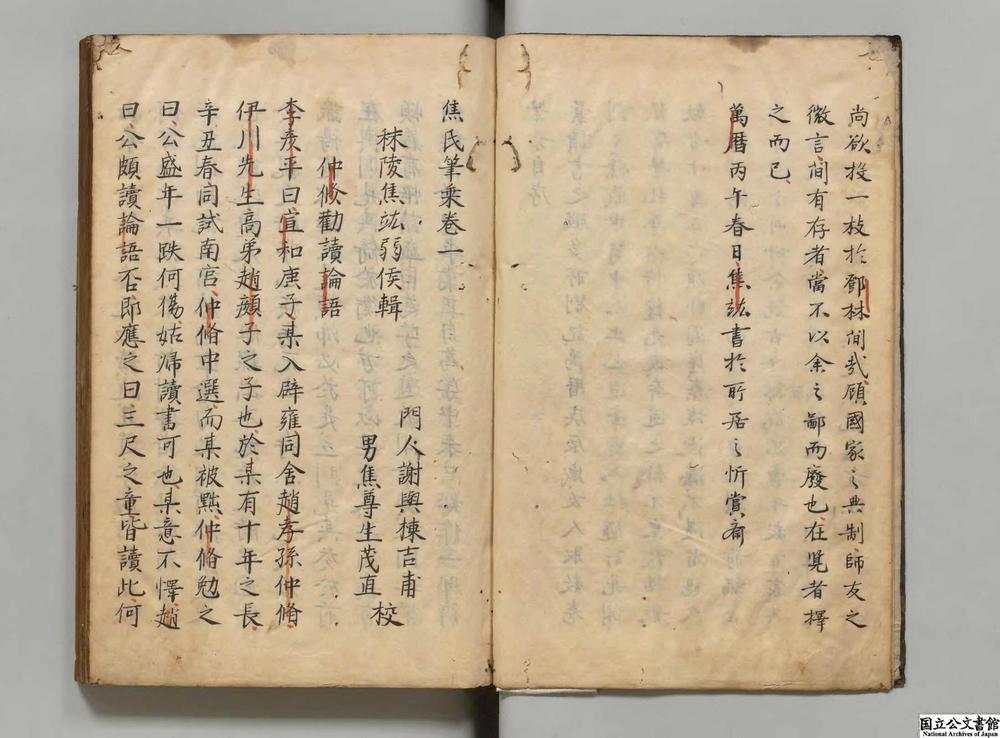 尚欲投一枝於鄧林間哉顧國家之典制師友之
微言間有存者當不以余之鄙而廢也在覽者擇
之而已
萬曆丙午春日焦竑書於所居之忻賞齋
焦氏筆乘卷一
秣陵焦竑弱侯輯
門人謝與棟吉甫
男焦尊生茂直 校
仲修勸讀論語
李彥平曰宣和庚子某入辟雍同舍趙孝孫仲脩
伊川先生高弟趙顏子之子也於某有十年之長
辛丑春同試南宫仲脩中選而某被黜仲脩勉之
曰公盛年一跌何傷姑歸讀書可也某意不懌趙
曰公頗讀論語否即應之曰三尺之童皆讀此何
国立公文書館
National Archives of Japan